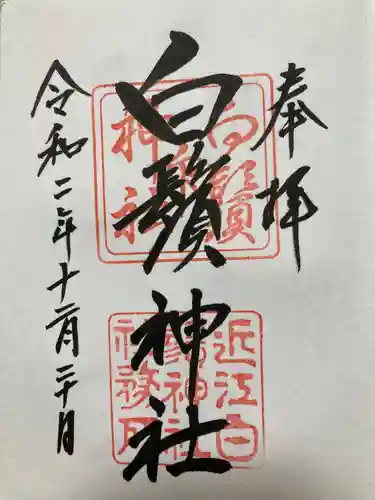 奉拝
白鬚神社
令和二年十二月二十日
白鬚神社
近江白鬚神社社務所